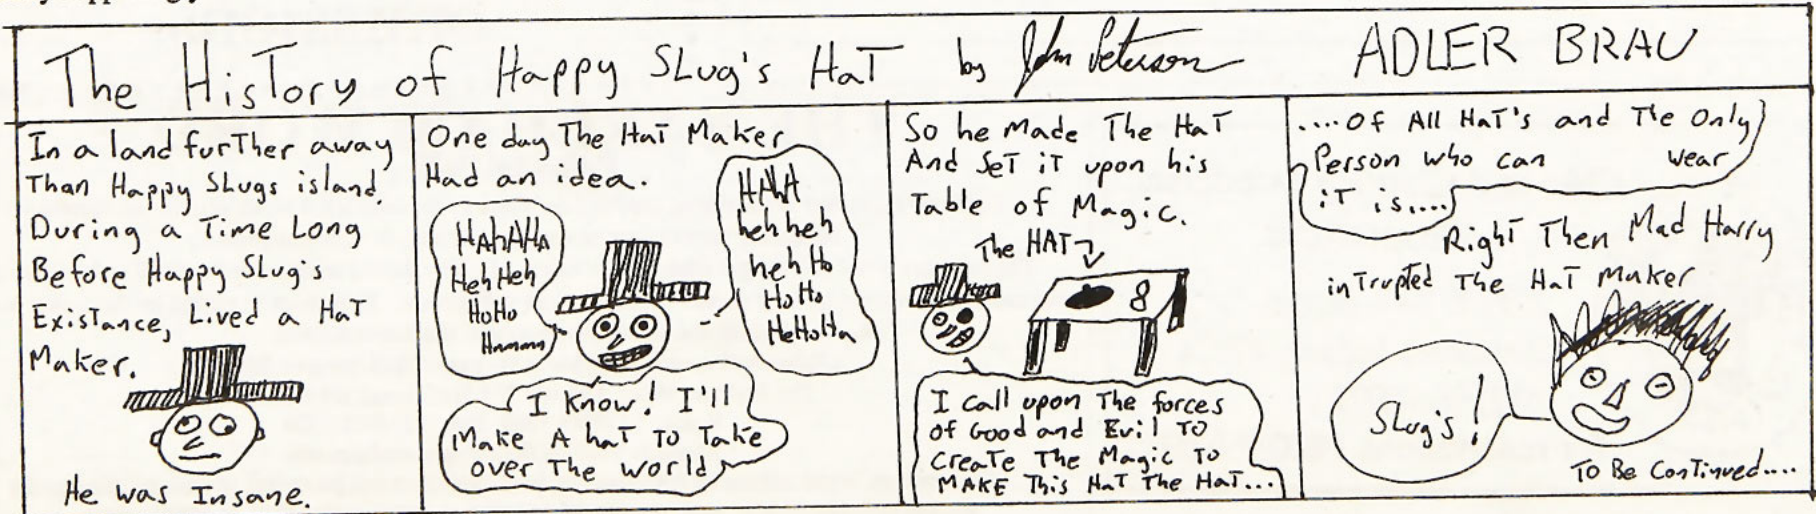 The History of Happy Slug's Hat by John Peterson ADLER BRAU
In a land further away
Than Happy Slugs island.
During a Time Long
Before Happy Slug's
Existance, Lived a Hat
Maker.
He was Insane.
One day The Hat Maker
Had an idea.
HAhAHA
Heh Heh
HoHo
Hamann
HAhA
heh heh
heh Ho
Ho Ho
HeHoHa
I Know! I'll
Make A haT To Take
over The world
So he Made The HaT
And SeT iT upon his
Table of Magic.
The HAT
8
I call upon The forces
of Good and Evil To
CreaTe The Magic To
MAKE This HaT The HaT...
....Of All HaT's and The Only
Person who can wear
iT is....
Right Then Mad Harry
inTrupted The HaT Maker
Slug's!
To Be ConTinued....